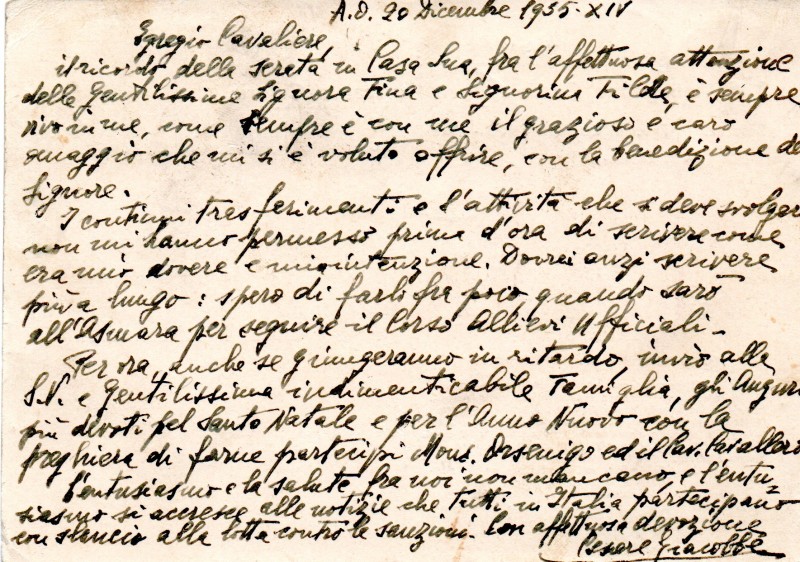 A.O. 20 Dicembre 1935-XIV
Egregio Cavaliere,
il ricordo della serata in Casa Sua, fra l'affettuosa attenzione
delle Gentilissime Signora Tina e Signorina Tilde, è sempre
vivo in me, come sempre è con me il grazioso e caro
omaggio che mi si è voluto offrire, con la benedizione del
Signore.
I continui trasferimenti e l'attività che si deve svolgere
non mi hanno permesso prima d'ora di scrivere come
era mio dovere e mia intenzione. Dovrei anzi scrivere
più a lungo: spero di farlo fra poco, quando sarò
all'Asmara per seguire il Corso Allievi Ufficiali -
Per ora, anche se giungeranno in ritardo, invio alla
S.V. e Gentilissima indimenticabile Famiglia, gli Auguri
più devoti pel Santo Natale e per l'Anno Nuovo con la
preghiera di farne partecipi Mons. Orsenigo ed il Cav. Cavallero
L'entusiasmo e la salute fra noi non mancano, e l'entu-
siasmo si accresce alle notizie che tutti in Italia partecipano
con slancio alla lotta contro le sanzioni. Con affettuosa devozione
Cesare Giacobbe